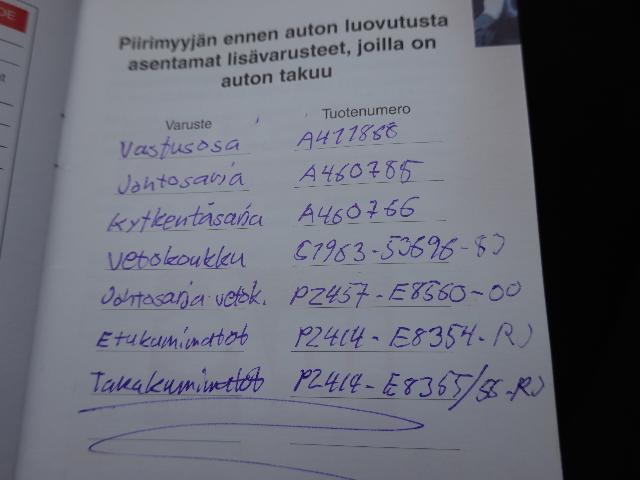 DE
Piirimyyjän ennen auton luovutusta
asentamat lisävarusteet, joilla on
auton takuu
Varuste Tuotenumero
Vastusosa A411868
Johtosarja A460785
Kytkentäsarja A460766
Vetokoukku
Johtosarja vetok. PZ457-E8560-00
Etukumimatot PZ414-E8354-RJ
Takakumimatot PZ414-E8355/56-RJ